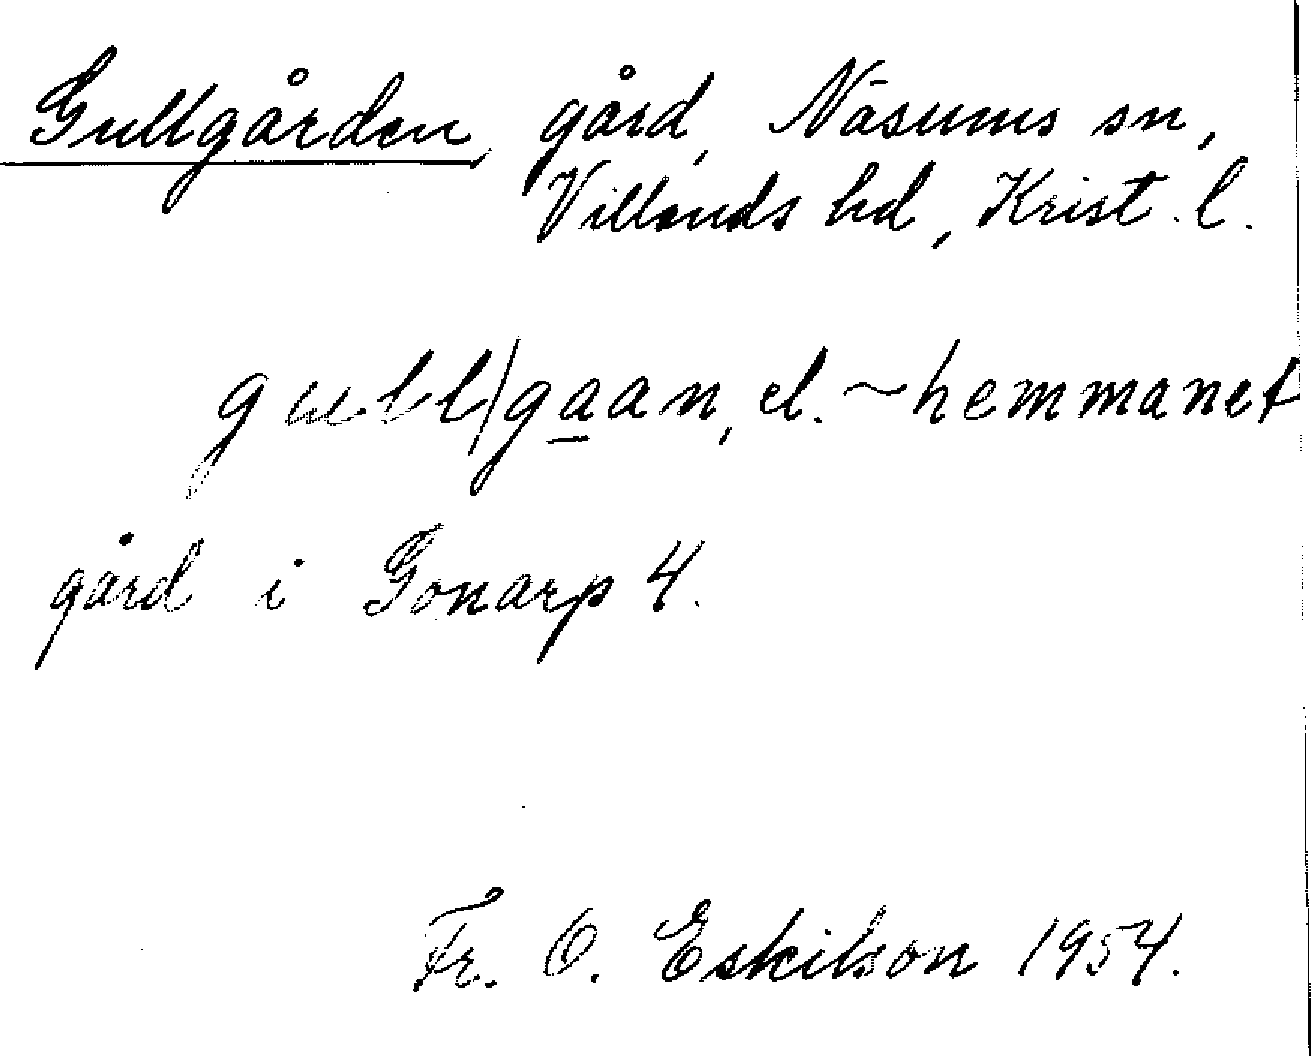 Gullgården, gård, Näsums sn,
Villands hd, Krist. l.
gull/gaan, el. ~hemmanet
gård i Gonarp 4.
Fr. O. Eskilson 1954.